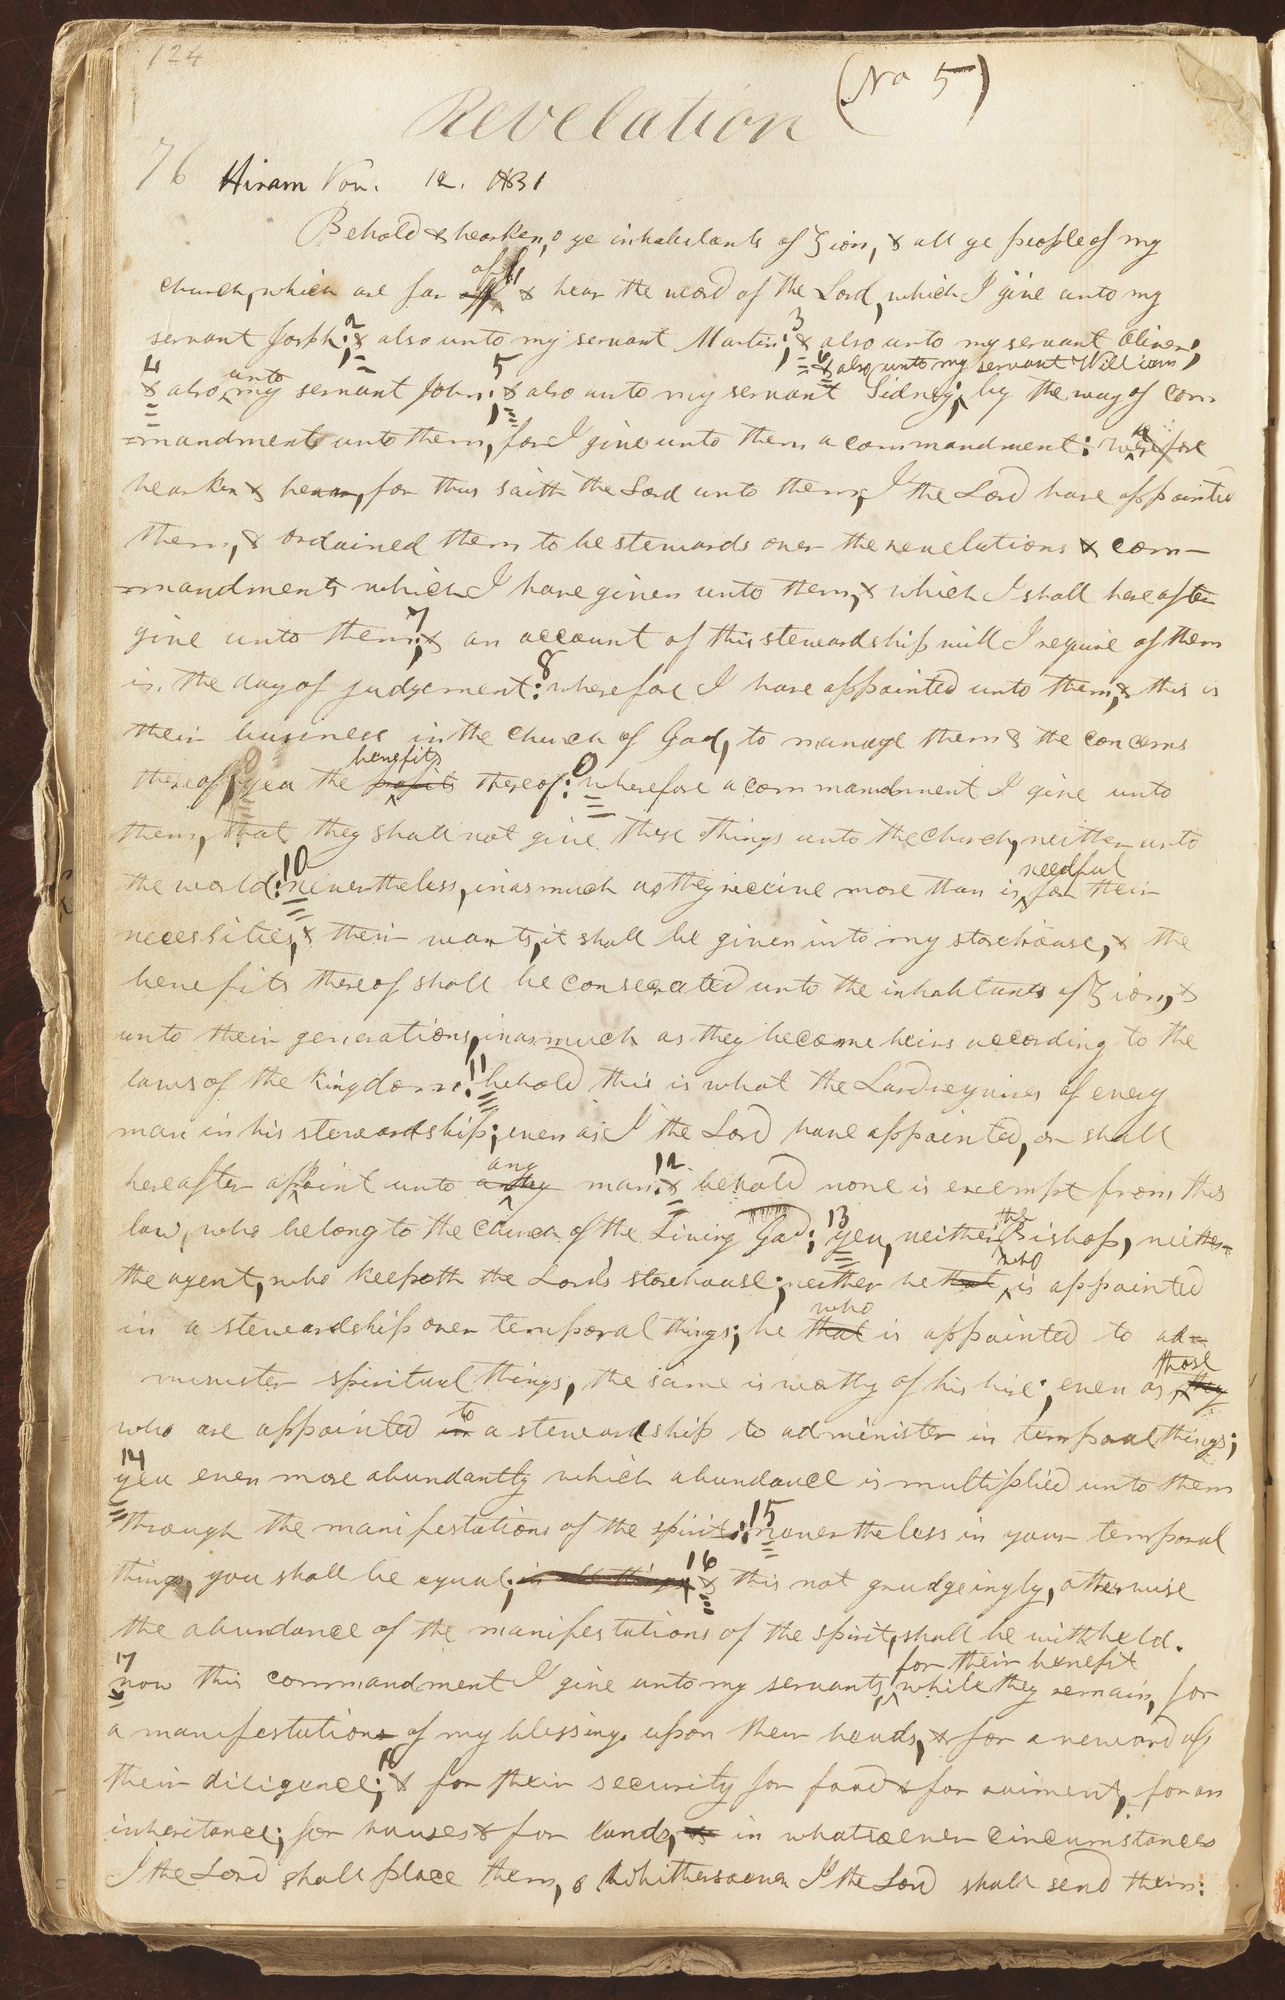 124
(No 5)
Revelation
76 Hiram Nov. 12. 1831
Behold & hearken, o ye inhabitants of Zion, & all ye people of my
church, which are far off & hear the word of the Lord, which I give unto my
servant Joseph: 2 & also unto my servant Martin; 3 & also unto my servant Oliver;
4 & also unto my servant John: 5 & also unto my servant Sidney; 6 & also unto my servant William; by the way of com
-mandment unto them, for I give unto them a commandment:
hearken & hear, for thus saith the Lord unto them, I the Lord have appointed
them, & ordained them to be stewards over the revelations & com-
-mandments which I have given unto them, & which I shall hereafter
give unto them: 7 & an account of this stewardship will I require of them
in the day of judgement: 8 wherefore I have appointed unto them, & this is
their business in the church of God, to manage them & the concerns
thereof, yea the profits benefits thereof: 9 wherefore a commandment I give unto
them, that they shall not give these things unto the church, neither unto
the world: 10 nevertheless, inasmuch as they receive more than is needful for their
necessities, & their wants, it shall be given into my storehouse, & the
benefits thereof shall be consecrated unto the inhabitants of Zion, &
unto their generations, inasmuch as they become heirs according to the
laws of the kingdom: 11 behold this is what the Lord requires of every
man in his stewardship; even as I the Lord have appointed, or shall
hereafter appoint unto any man: 12 & behold none is exempt from this
law, who belong to the church of the Living God; 13 yea, neither the Bishop, neither
the agent, who keepeth the Lord's storehouse; neither he that who is appointed
in a stewardship over temporal things; he that who is appointed to ad-
minister spiritual things, the same is worthy of his hire; even as they those
who are appointed in to a stewardship to administer in temporal things;
14 yea even more abundantly which abundance is multiplied unto them
through the manifestations of the spirit: 15 nevertheless in your temporal
things, you shall be equal; in all things 16 & this not grudgeingly, otherwise
the abundance of the manifestations of the spirit, shall be withheld.
17 now this commandment I give unto my servants, for their benefit while they remain, for
a manifestation of my blessings upon their heads, & for a reward of
their diligence; 18 & for their security for food & for raiment, for an
inheritance; for houses & for lands, & in whatsoever circumstances
I the Lord shall place them, & whithersoever I the Lord shall send them: